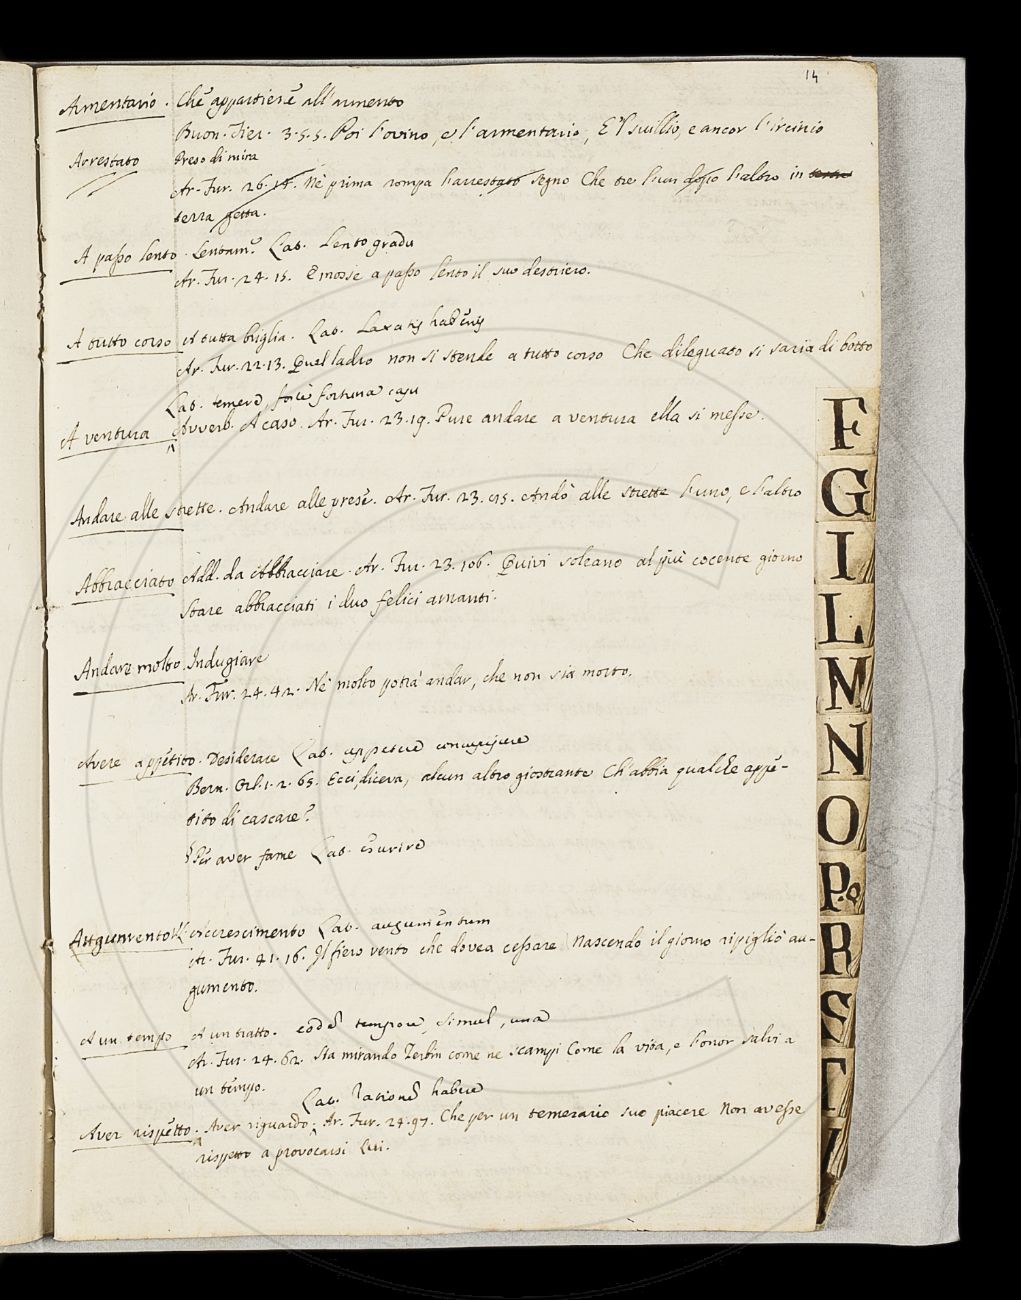 14
Armentario. Che appartiene all'armento
Buon. Fier. 3.5.5. Poi l'ovino, e l'armentario, E'l suillo, e ancor l'ircinio
Arrestato Preso di mira
Ar. Fur. 26. Nè prima rompa l'arrestato segno Che tre l'un dopo l'altro in
terra getta.
A passo lento. Lentam.e Lat. Lento gradu
Ar. Fur. 24. 15. E mosse a passo lento il suo destriero.
A tutto corso A tutta briglia. Lat. Laxatis habenis
Ar. Fur. 22.13. Quel ladro non si stende a tutto corso Che dileguato si saria di botto
Lat. temere, forte fortuna casu
A ventura Avverb. A caso. Ar. Fur. 23.19. Pure andare a ventura ella si messe.
Andare alle strette. Andare alle prese. Ar. Fur. 23. Andò alle strette l'uno, e l'altro
Abbracciato Add. da Abbracciare. Ar. Fur. 23.106. Quivi soleano al più cocente giorno
Stare abbracciati i duo felici amanti.
Andare molto. Indugiare
Ar. Fur. 24.42. Nè molto potrà andar, che non sia morto.
Avere appetito. Desiderare Lat. appetere concupiscere
Bern. Orl. 1.2.65. Ecci, diceva, alcun altro giostrante Ch'abbia qualche appe-
tito di cascare?
§ Per aver fame Lat. esurire
Augumento Accrescimento Lat. augumentum
Ar. Fur. 41.16. Il fiero vento che dovea cessare Nascendo il giorno ripigliò au-
gumento.
A un tempo A un tratto. eodem tempore, simul, una
Ar. Fur. 24.62. Sta mirando Zerbin come ne scampi Come la vita, e l'onor salvi a
un tempo.
Lat. rationem habere
Aver rispetto. Aver riguardo. Ar. Fur. 24.97. Che per un temerario suo piacere Non avesse
rispetto a provocarsi lui.
F
G
I
L
M
N
O
P.Q
R
S
T
V